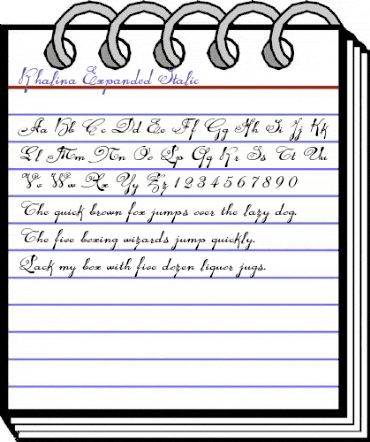 Rhalina Expanded Italic
Aa Bb Cc Dd Ee Ff Gg Hh Ii Jj Kk
Ll Mm Nn Oo Pp Qq Rr Ss Tt Uu
Vv Ww Xx Yy Zz 1 2 3 4 5 6 7 8 9 0
The quick brown fox jumps over the lazy dog.
The five boxing wizards jump quickly.
Pack my box with five dozen liquor jugs.